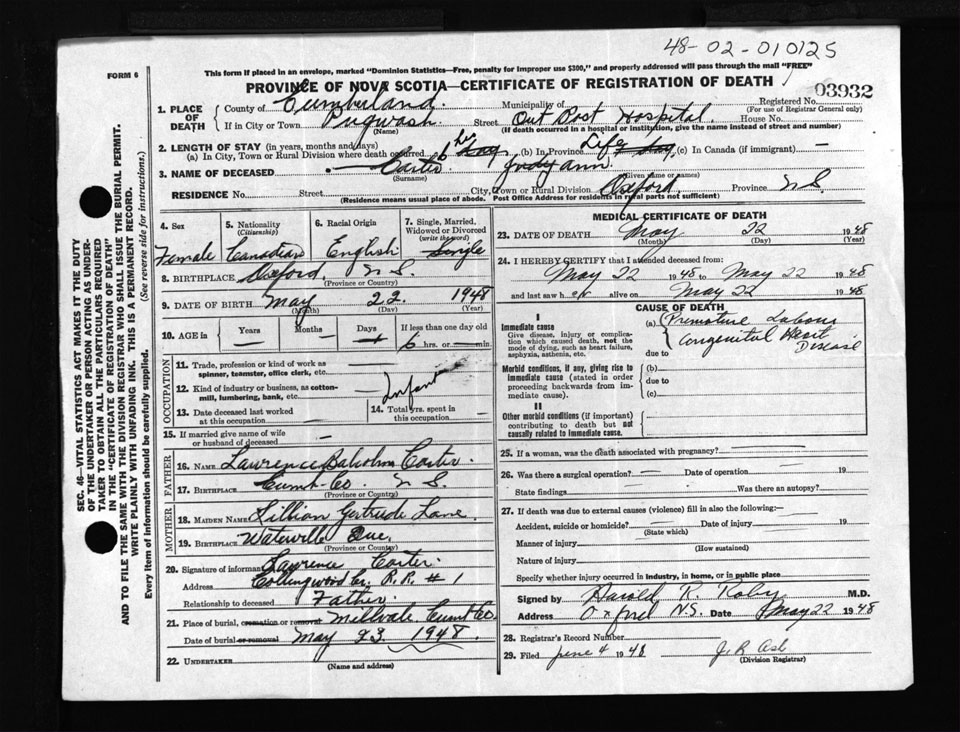 48-02-010125
FORM 6
This form if placed in an envelope, marked "Dominion Statistics—Free, penalty for improper use $300," and properly addressed will pass through the mail "FREE"
PROVINCE OF NOVA SCOTIA—CERTIFICATE OF REGISTRATION OF DEATH
03932
1. PLACE OF DEATH County of Cumberland. Municipality of Registered No.
(For use of Registrar General only)
If in City or Town Pugwash Street Out Post Hospital. House No.
(Name) (If death occurred in a hospital or institution, give the name instead of street and number)
2. LENGTH OF STAY (in years, months and days)
(a) In City, Town or Rural Division where death occurred 6 hrs day (b) In Province Life day (c) In Canada (if immigrant) —
3. NAME OF DECEASED Carter Judy Ann.
(Surname) (Given name or names)
RESIDENCE No. Street City, Town or Rural Division Oxford. Province N S
(Residence means usual place of abode. Post Office Address for residents in rural parts not sufficient)
SEC. 46—VITAL STATISTICS ACT MAKES IT THE DUTY
OF THE UNDERTAKER OR PERSON ACTING AS UNDER-
TAKER TO OBTAIN ALL THE PARTICULARS REQUIRED
IN THE "CERTIFICATE OF REGISTRATION OF DEATH"
AND TO FILE THE SAME WITH THE DIVISION REGISTRAR WHO SHALL ISSUE THE BURIAL PERMIT.
WRITE PLAINLY WITH UNFADING INK. THIS IS A PERMANENT RECORD.
Every item of information should be carefully supplied. (See reverse side for instructions.)
4. Sex 5. Nationality (Citizenship) 6. Racial Origin 7. Single, Married, Widowed or Divorced (write the word)
Female Canadian English Single
8. BIRTHPLACE Oxford, N S.
(Province or Country)
9. DATE OF BIRTH May 22. 1948
(Month) (Day) (Year)
10. AGE in Years Months Days If less than one day old
— — — 6 hrs. or — min.
OCCUPATION
11. Trade, profession or kind of work as spinner, teamster, office clerk, etc.
12. Kind of industry or business, as cotton-mill, lumbering, bank, etc. Infant
13. Date deceased last worked at this occupation
14. Total yrs. spent in this occupation
15. If married give name of wife or husband of deceased —
FATHER
16. NAME Lawrence Carter
17. BIRTHPLACE Cumb. Co. N S.
(Province or Country)
MOTHER
18. MAIDEN NAME Lillian Gertrude Lane
19. BIRTHPLACE Waterville Que.
(Province or Country)
20. Signature of informant Lawrence Carter
Address Collingwood Cr. R.R. # 1
Relationship to deceased Father.
21. Place of burial, cremation or removal Millvale Cumb Co.
Date of burial or removal May 23. 1948.
22. UNDERTAKER
(Name and address)
MEDICAL CERTIFICATE OF DEATH
23. DATE OF DEATH May 22 1948
(Month) (Day) (Year)
24. I HEREBY CERTIFY that I attended deceased from:
May 22 1948 to May 22 1948
and last saw her alive on May 22 1948
CAUSE OF DEATH
I
Immediate cause
Give disease, injury or complication which caused death, not the mode of dying, such as heart failure, asphyxia, asthenia, etc.
(a) Premature Labour
Congenital Heart Disease
due to
Morbid conditions, if any, giving rise to immediate cause (stated in order proceeding backwards from immediate cause).
(b)
due to
(c)
II
Other morbid conditions (if important) contributing to death but not causally related to immediate cause.
25. If a woman, was the death associated with pregnancy?
26. Was there a surgical operation? — Date of operation — 19
State findings Was there an autopsy?
27. If death was due to external causes (violence) fill in also the following:—
Accident, suicide or homicide? Date of injury 19
(State which)
Manner of injury
(How sustained)
Nature of injury
Specify whether injury occurred in industry, in home, or in public place
Signed by Harold R. Roby M.D.
Address Oxford N.S. Date May 22 1948
28. Registrar's Record Number
29. Filed June 4 1948 J R Ash
(Division Registrar)